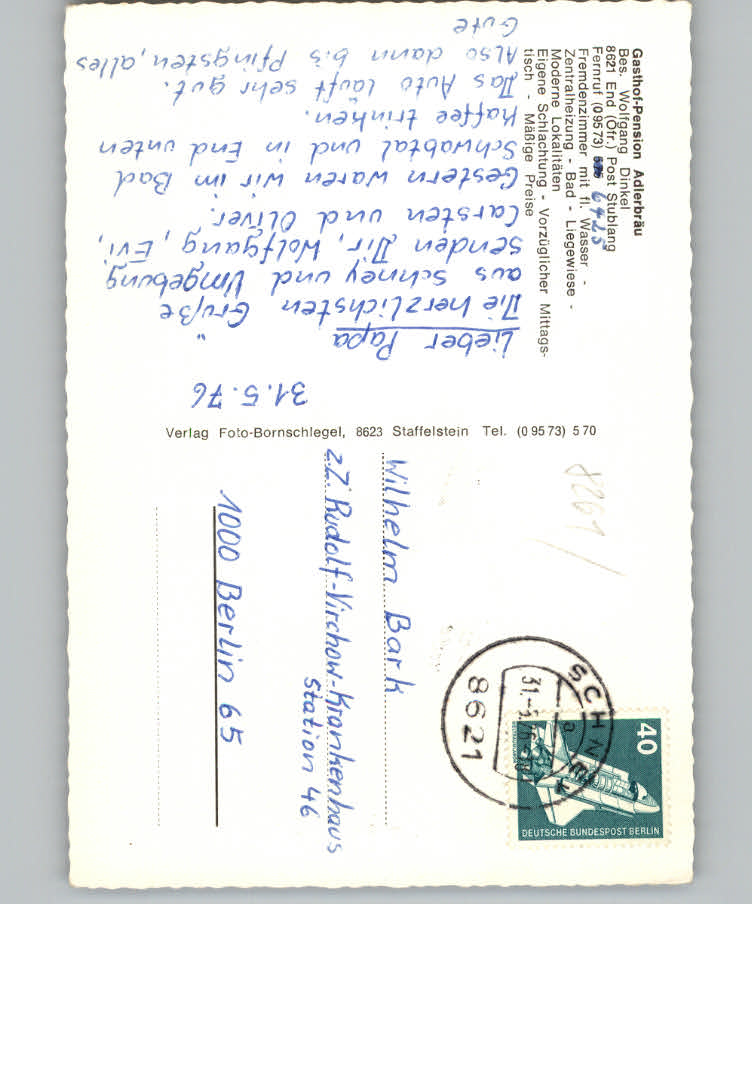 Gasthof-Pension Adlerbräu
Bes. Wolfgang Dinkel
8621 End (Ofr.) Post Stublang
Fernruf (0 95 73) 6425
Fremdenzimmer mit fl. Wasser -
Zentralheizung - Bad - Liegewiese -
Moderne Lokalitäten
Eigene Schlachtung - Vorzüglicher Mittags-
tisch - Mäßige Preise
31.5.76
Lieber Papa
Die herzlichsten Grüße
aus Schney und Umgebung
senden Dir, Wolfgang, Evi,
Carsten und Oliver.
Gestern waren wir im Bad
Schwabtal und in End unten
Kaffee trinken.
Das Auto läuft sehr gut.
Also dann bis Pfingsten, alles
Gute
Verlag Foto-Bornschlegel, 8623 Staffelstein Tel. (0 95 73) 5 70
Wilhelm Bark
z.Z. Rudolf-Virchow-Krankenhaus
Station 46
1000 Berlin 65
SCHNEY
a
8621
40
DEUTSCHE BUNDESPOST BERLIN